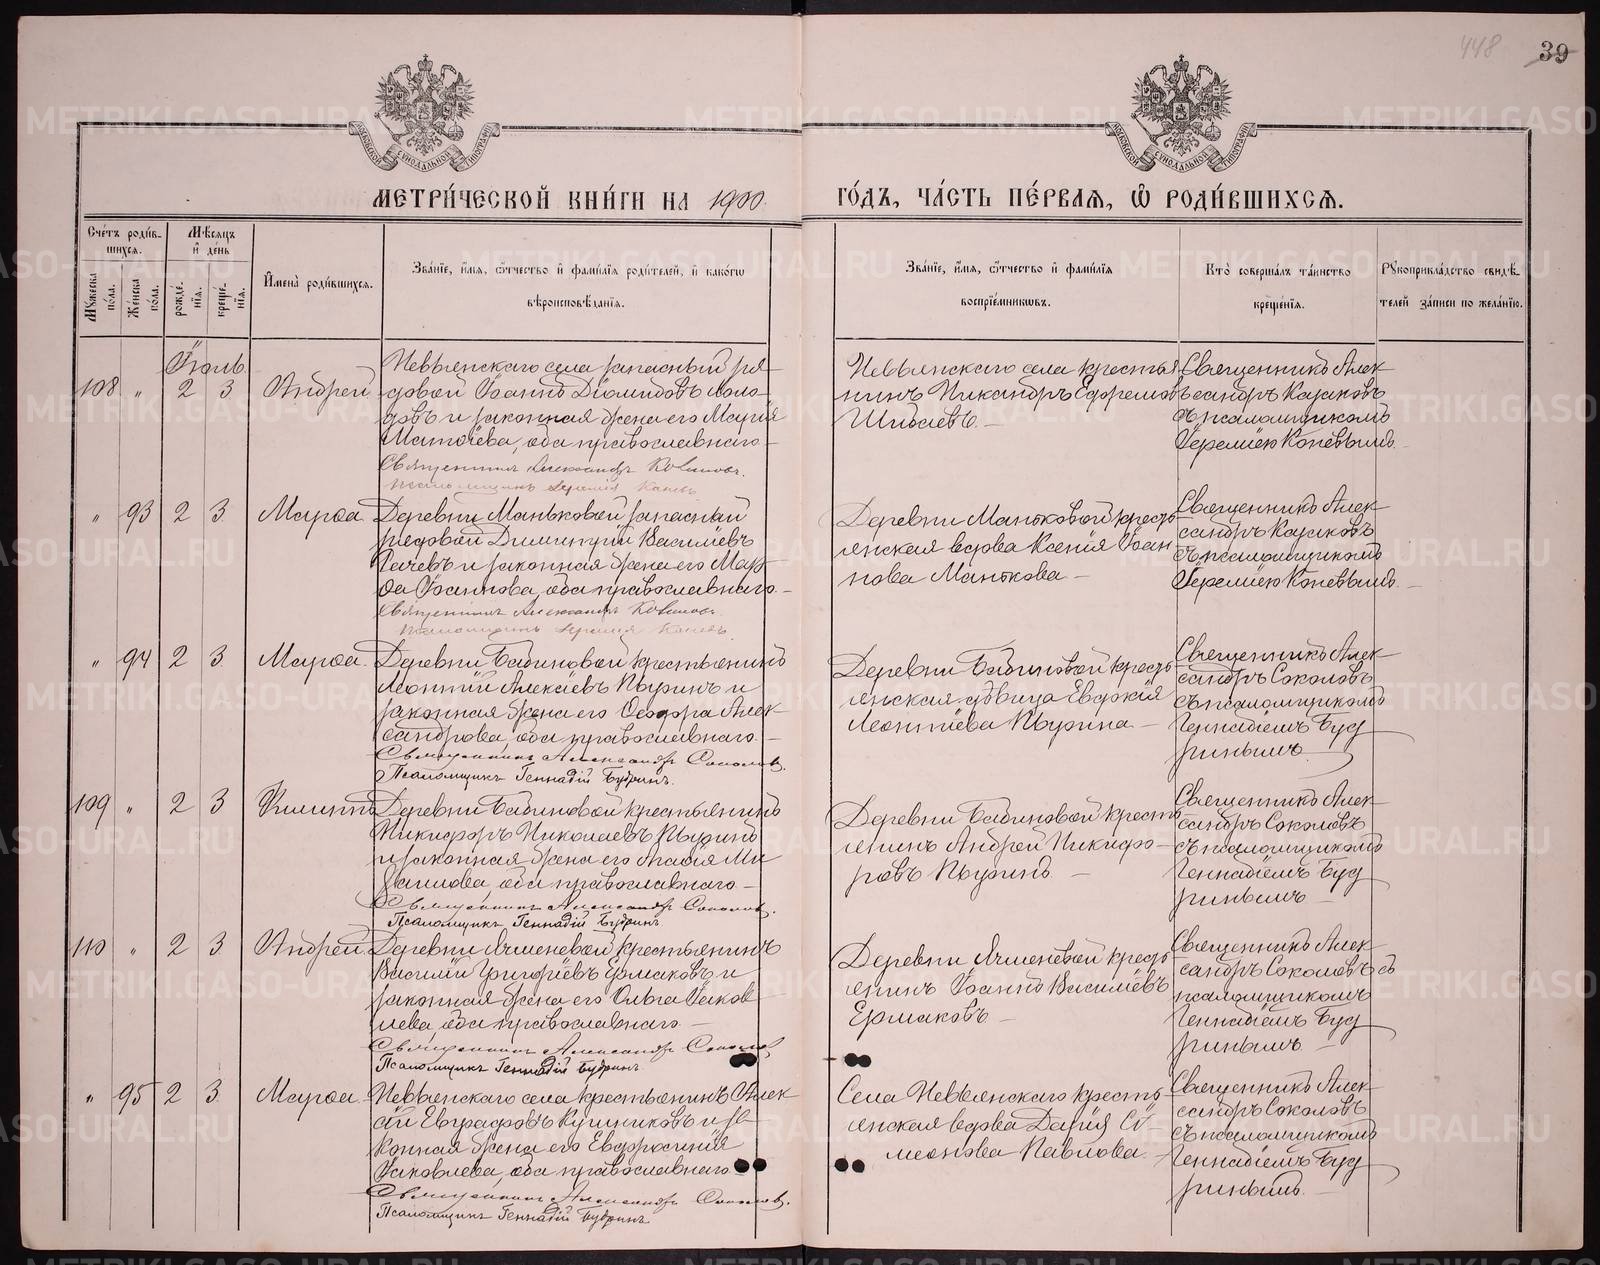 448 39
МЕТРИ́ЧЕСКОЙ КНИ́ГИ НА 1900 ГО́ДЪ, ЧА́СТЬ ПЕ́РВАЯ, Ѡ РОДИ́ВШИХСЯ.
Сче́тъ роди́вшихся.
Мꙋжеска по́ла.
Же́нска по́ла.
Мѣ́сяцъ и҆ де́нь
рожде́нїя.
креще́нїя.
И҆мена̀ роди́вшихся.
Зва́нїе, и҆́мя, ѻ҆́тчество и҆ фами́лїя роди́телей, и҆ како́гѡ
вѣроисповѣ́данїя.
Зва́нїе, и҆́мя, ѻ҆́тчество и҆ фами́лїя
воспрїе́мникѡвъ.
Кто̀ соверша́лъ та́инство
креще́нїя.
Рꙋкоприкла́дство свидѣ́телей за́писи по жела́нїю.
Іюль
108 " 2 3 Андрей
Невьянскаго села запасный ря
довой Іоаннъ Діомидовъ
и законная жена его Марія
Матѳіева, оба православнаго
Священникъ Александръ
Псаломщикъ Іеремія Коневъ
Невьянскаго села крестья
нинъ Никандръ Ефремовъ
Шибаевъ.
Священникъ Алек
сандръ
съ псаломщикомъ
Іереміею Коневымъ.
" 93 2 3 Марѳа
Деревни Маньковой запасный
рядовой Димитрій Василіевъ
и законная жена его Мар
ѳа Іоаннова, оба православнаго
Священникъ Александръ
Псаломщикъ Іеремія Коневъ.
Деревни Маньковой кресть
янская вдова Ксенія Іоан
нова Манькова
Священникъ Алек
сандръ
съ псаломщикомъ
Іереміею Коневымъ.
" 94 2 3 Марѳа
Деревни Бабиновой крестьянинъ
Леонтій Алексіевъ Пыринъ и
законная жена его Ѳеодора Алек
сандрова, оба православнаго
Священникъ Александръ Соколовъ.
Псаломщикъ Геннадій Будринъ.
Деревни Бабиновой кресть
янская дѣвица Евдокія
Леонтіева Пырина
Священникъ Алек
сандръ Соколовъ
съ псаломщикомъ
Геннадіемъ Буд
ринымъ.
109 " 2 3 Филиппъ
Деревни Бабиновой крестьянинъ
Никифоръ Николаевъ Пыринъ
и законная жена его Агафія Ми
хаилова, оба православнаго
Священникъ Александръ Соколовъ.
Псаломщикъ Геннадій Будринъ.
Деревни Бабиновой кресть
янинъ Андрей Никифо
ровъ Пыринъ
Священникъ Алек
сандръ Соколовъ
съ псаломщикомъ
Геннадіемъ Буд
ринымъ
110 " 2 3 Андрей
Деревни Ячменевой крестьянинъ
Василій Григоріевъ Ермаковъ и
законная жена его Ольга Іаков
лева, оба православнаго
Священникъ Александръ Соколовъ
Псаломщикъ Геннадій Будринъ
Деревни Ячменевой кресть
янинъ Іоаннъ Василіевъ
Ермаковъ
Священникъ Алек
сандръ Соколовъ съ
псаломщикомъ
Геннадіемъ Буд
ринымъ
" 95 2 3 Марѳа
Невьянскаго села крестьянинъ Алек
сій Евграфовъ и за
конная жена его Евфросинія
Іаковлева, оба православнаго
Священникъ Александръ Соколовъ.
Псаломщикъ Геннадій Будринъ
Села Невьянскаго кресть
янская вдова Дарія Сѵ
меонова Павлова
Священникъ Алек
сандръ Соколовъ
съ псаломщикомъ
Геннадіемъ Буд
ринымъ.
METRIKI.GASO-URAL.RU